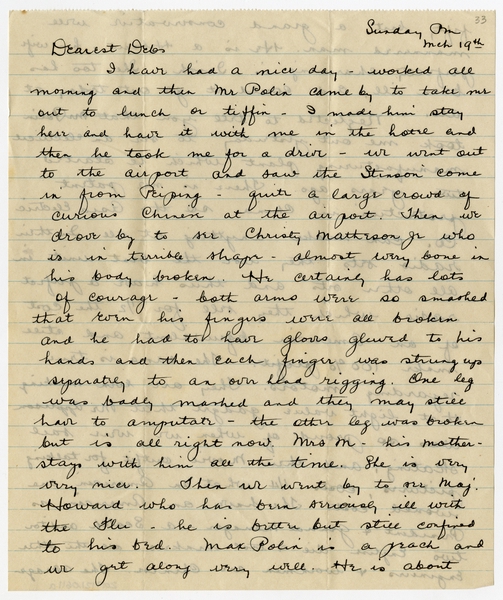 33
Sunday Pm
Mch 19th
Dearest Debs
I have had a nice day - worked all
morning and then Mr Polin came by to take me
out to lunch or tiffin - I made him stay
here and have it with me in the hotel and
then he took me for a drive - we went out
to the airport and saw the Stinson come
in from Peiping - quite a large crowd of
curious Chinese at the airport. Then we
drove by to see Christy Matheson Jr who
is in terrible shape - almost every bone in
his body broken. He certainly has lots
of courage - both arms were so smashed
that even his fingers were all broken
and he had to have gloves glewed to his
hands and then each finger was strung up
separately to an over head rigging. One leg
was badly mashed and they may still
have to amputate - the other leg was broken
but is all right now. Mrs M - his mother -
stays with him all the time. She is very
very nice. Then we went by to see Maj.
Howard who has been seriously ill with
the Flu - he is better but still confined
to his bed. Max Polin is a peach and
we get along very well. He is about